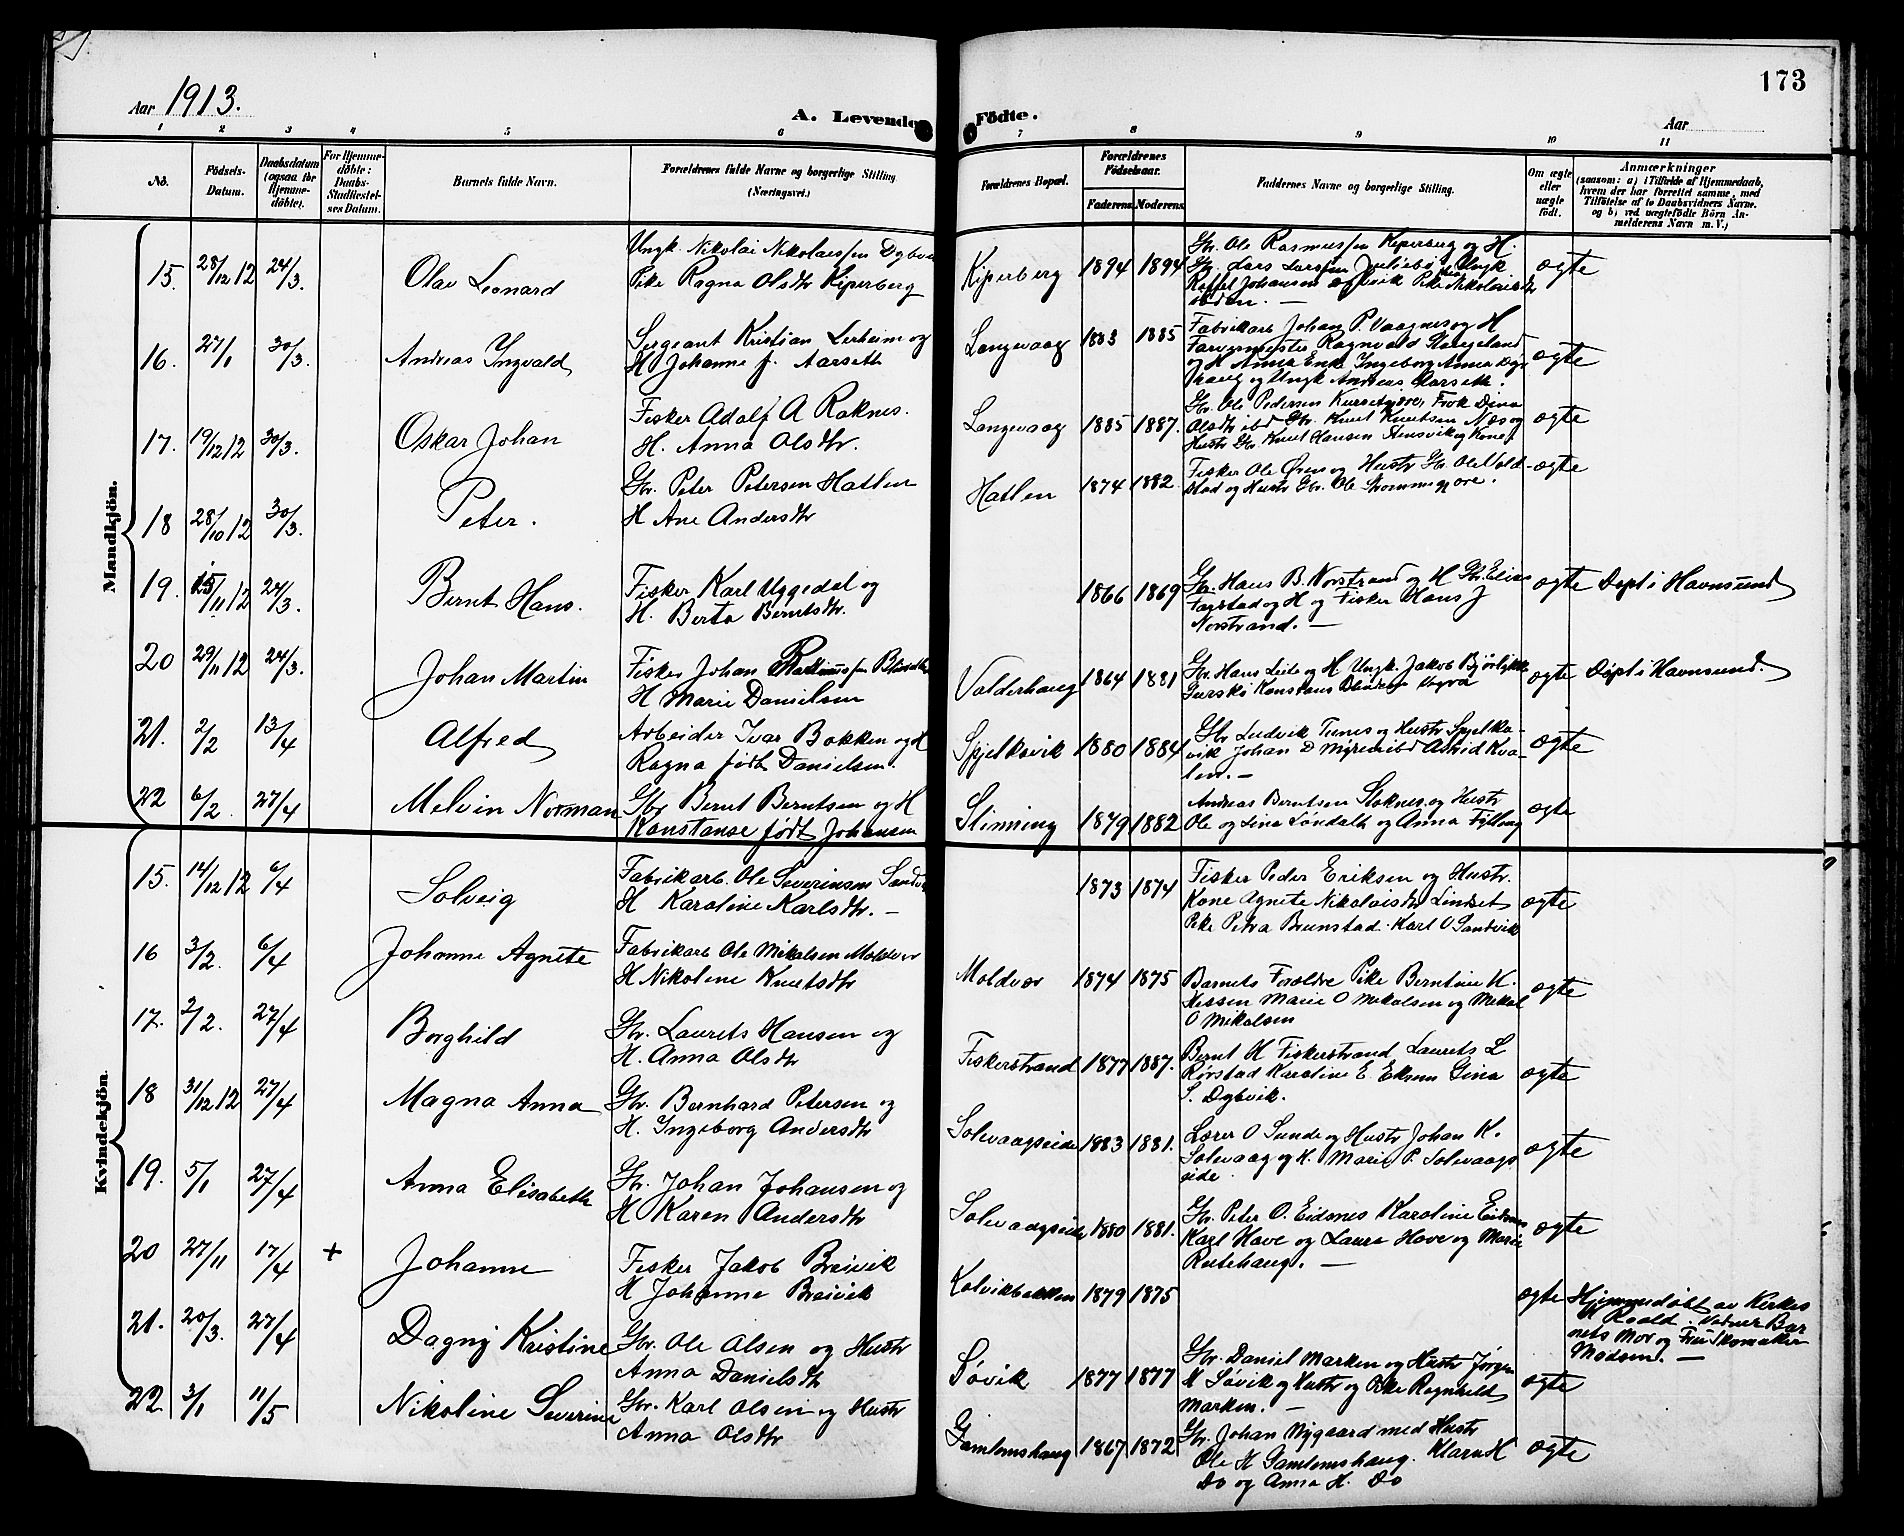 173
Aar 1913.
A. Levende Födte.
Aar
1 2 3 4 5 6 7 8 9 10 11
No.
Födsels-Datum.
Daabsdatum (ogsaa for Hjemme-døbte).
For Hjemme-døbte: Daabs-Stadfæstel-ses Datum.
Barnets fulde Navn.
Forældrenes fulde Navne og borgerlige Stilling (Næringsvei.)
Forældrenes Bopæl.
Forældrenes Födselsaar.
Faderens Moderens
Faddernes Navne og borgerlige Stilling.
Om ægte eller uægte født.
Anmærkninger
(saasom: a) i Tilfælde af Hjemmedaab,
hvem der har forrettet samme, med
Tilföielse af to Daabsvidners Navne.
og b) ved uægtefödte Börn An-
melderens Navn m.V.)
Mandkjön.
15. 28/12 12 24/3. Olav Leonard
Ungk. Nikolai Nikolaissen Dybvi
Pike Ragna Olsdtr Kiperberg
Kiperberg 1894 1894
Gbr. Ole Rasmussen Kiperberg og H.
Gbr. Lars Larssen
Johansen
ægte
16. 27/1 30/3. Andreas Ingvald
Sergeant Kristian Lerheim og
H Johanne f. Aarseth
Langevaag 1883 1885
Fabrikarb Johan P. Vaagnes og H
Farvermester Ragnvald
og H Anna Enke Ingeborg Anna
og Ungk Andreas Aarseth.
ægte
17. 19/12 12 30/3. Oskar Johan
Fisker Adolf A Roknes.
H. Anna Olsdtr.
Langevaag 1885 1887.
Gbr. Ole Pedersen Frøk Dina
Olsdtr ibd Gbr. Knut Knutsen Næs og
Hustr Gbr. Knut Hansen Stensvik og Kone
ægte
18 28/10 12 30/3. Peter.
Gbr. Peter Petersen Hatlen
H Ane Andersdtr
Hatlen 1874 1882.
Fisker Ole Øren og Hustr Gbr. Ole Vold-
stad og Hustr Gbr. Ole
ægte
19. 15/11 12 24/3. Bernt Hans.
Fisker Karl Uggedal og
H. Berta Berntsdtr.
1866 1869
Gbr. Hans B. Norstrand og H Gbr. Elias
Fagstad og H og Fisker Hans J
Norstrand. —
ægte Døpt i Havnsund
20 29/11 12 24/3. Johan Martin
Fisker Johan
H Marie Danielsen
Valderhaug 1864 1881
Gbr. Hans Leite og H. Ungk. Jakob Bjørlykke
Gurski Konstans
ægte Døpt i Havnsund.
21. 2/2 13/4 Alfred
Arbeider Ivar Bakken og H
Ragna født Danielsen.
Spjelkavik 1880 1884
Gbr Ludvik Tunes og Hustr Spjelka-
vik Johan D Myren ibd Astrid Kva-
len. —
ægte
22 6/2. 27/4 Melvin Norman
Gbr Bernt Berntsen og H
Konstanse født Johansen
Slinning 1879 1882
Andreas Berntsen Sloknes og Hustr
Ole og Lina og Anna Fylling
ægte
Kvindekjön.
15. 14/12 12 6/4 Solveig
Fabrikarb. Ole Severinsen Sandv
H Karoline Karlsdtr. —
1873 1874
Fisker Peder Eriksen og Hustr.
Kone Agnete Nikolaisdtr Lindset
Pike Petra Brunstad. Karl O Sandvik
ægte
16 3/2. 6/4 Johanne Agnete
Fabrikarb Ole Mikalsen Moldvær
H Nikoline Knutsdtr
Moldvær 1874 1875
Barnets Forældre Pike Berntine K.
Nessen Marie O Mikalsen og Mikal
O Mikalsen
ægte
17. 2/2. 27/4 Borghild
Gbr. Laurets Hansen og
H. Anna Olsdtr
Fiskerstrand 1877 1887.
Bernt H Fiskerstrand Laurets L
Rørstad Karoline E. Gina
S. Dybvik.
ægte
18 31/12 12 27/4 Magna Anna
Gbr. Bernhard Petersen og
H. Ingeborg Andersdtr
Solevaagseide 1883 1881.
Lærer O Sunde og Hustr Johan K.
Solevaag og H. Marie P. Solevaags
eide.
ægte
19. 5/1 27/4 Anna Elisabeth
Gbr. Johan Johansen og
H Karen Andersdtr
Solevaagseide 1880 1881.
Gbr. Peter O. Eidsnes Karoline Eidsnes
Karl Have og Laura Have og Marie
Rutehaug. —
ægte
20 27/11 17/4 + Johanne
Fisker Jakob Breivik
H Johanne Breivik
Kolvikbakken 1879 1875
ægte
Hjemmedøbt av Kirkes
H Roald. Vidner Bar
nets Mor og Fru Skomaker
Madsen. —
21. 20/3. 27/4 Dagny Kristine
Gbr. Ole Olsen og Hustr
Anna Danielsdtr
Søvik 1877 1877
Gbr. Daniel Marken og Hustr Jørgen
M Søvik og Hustr og Pike Ragnhild
Marken. —
ægte
22. 3/1 11/5 Nikoline Severine
Gbr. Karl Olsen og Hustr
Anna Olsdtr
Gamlemshaug 1867 1872
Gbr. Johan Nygaard med Hustr
Ole H Gamlemshaug. Klara H
Do og Anna H. Do
ægte